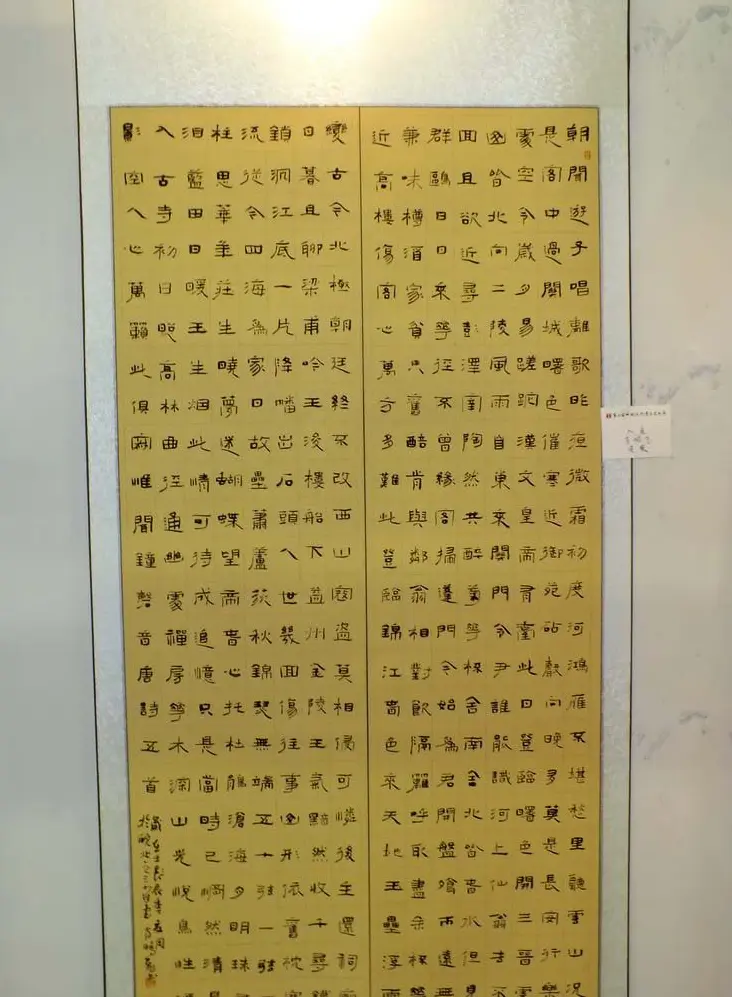 朝聞遊子唱離歌昨夜微霜初度河鴻雁不堪愁裏聽雲山況
是客中過關城曙色催寒近御苑砧聲向晚多莫是長安行樂
處空令歲月易蹉跎漢文皇帝有臺此日登臨曙色開三晉雲
山皆北向二陵風雨自東來關門令尹誰能識河上仙翁去不
回且欲近尋彭澤宰陶然共醉菊花杯舍南舍北皆春水但見
群鷗日日來花徑不曾緣客掃蓬門今始為君開盤飧市遠無
兼味樽酒家貧只舊醅肯與鄰翁相對飲隔籬呼取盡余杯
近高樓傷客心萬方多難此登臨錦江春色來天地玉壘浮雲
變古今北極朝廷終不改西山寇盜莫相侵可憐後主還祠
日暮且聊梁甫吟王濬樓船下益州金陵王氣黯然收千尋鐵
鎖沉江底一片降幡出石頭人世幾回傷往事山形依舊枕寒
流從今四海為家日故壘蕭蘆荻秋錦瑟無端五十弦一弦
柱思華年莊生曉夢迷蝴蝶望帝春心托杜鵑滄海月明珠有
淚藍田日暖玉生煙此情可待成追憶只是當時已惘然清
入古寺初日照高林曲徑通幽處禪房花木深山光悅鳥性
影空人心萬籟此俱寂惟聞鐘磬音唐詩五首